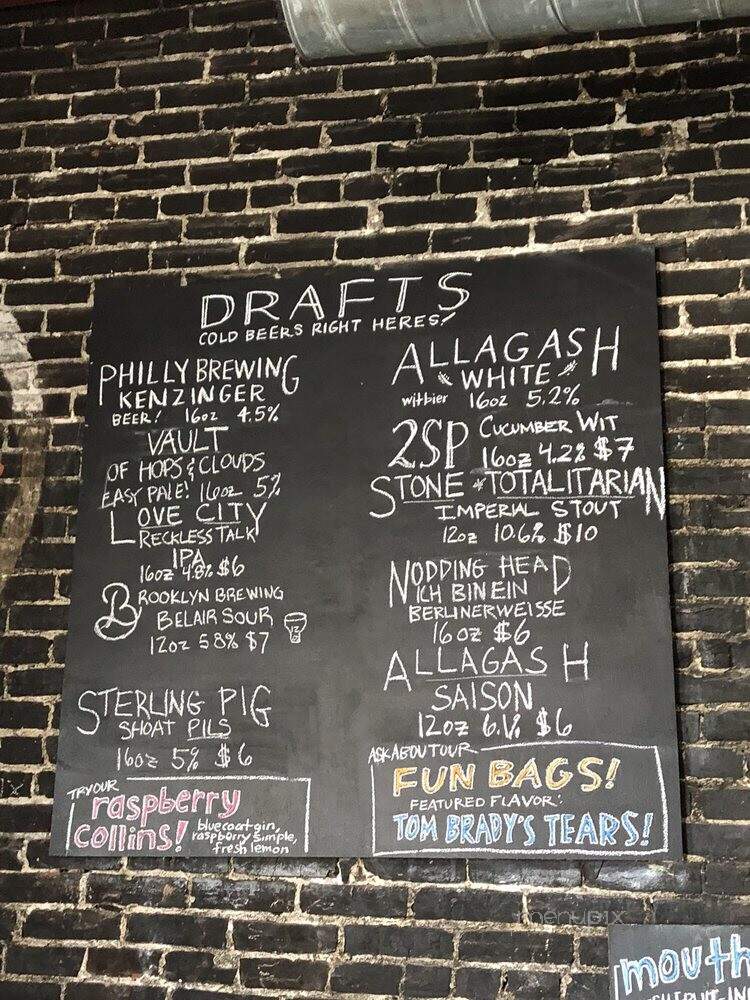 DRAFTS
COLD BEERS RIGHT HERES!
PHILLY BREWING
KENZINGER
BEER! 16oz 4.5%
VAULT
OF HOPS & CLOUDS
EASY PALE! 16oz 5%
LOVE CITY
RECKLESS TALK
IPA
16oz 4.8% $6
BROOKLYN BREWING
BELAIR SOUR
12oz 5.8% $7
STERLING PIG
SHOAT PILS
16oz 5% $6
TRY OUR
raspberry
collins!
bluecoat gin,
raspberry simple,
fresh lemon
ALLAGASH
WHITE
witbier 16oz 5.2%
2SP CUCUMBER WIT
16oz 4.2% $7
STONE TOTALITARIAN
IMPERIAL STOUT
12oz 10.6% $10
NODDING HEAD
ICH BIN EIN
BERLINERWEISSE
16oz $6
ALLAGASH
SAISON
12oz 6.1% $6
ASK ABOUT OUR
FUN BAGS!
FEATURED FLAVOR:
TOM BRADY'S TEARS!
menupix
mouth